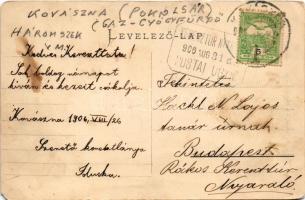 KOVÁSZNA (POKOLSÁR)
(GÁZ-GYÓGYFÜRDŐ)
HÁROMSZÉK
V.M.
LEVELEZŐ-LAP
Kedves Keresztatta!
Sok boldog névnapot
kiván és kezeit csókolja
Kovászna 1906. VIII/26
Szerető keresztlánya
Iluska.
Tekintetes
Hackl N. Lajos
tanár úrnak
Budapest
Rákos Keresztúr
Nyaraló